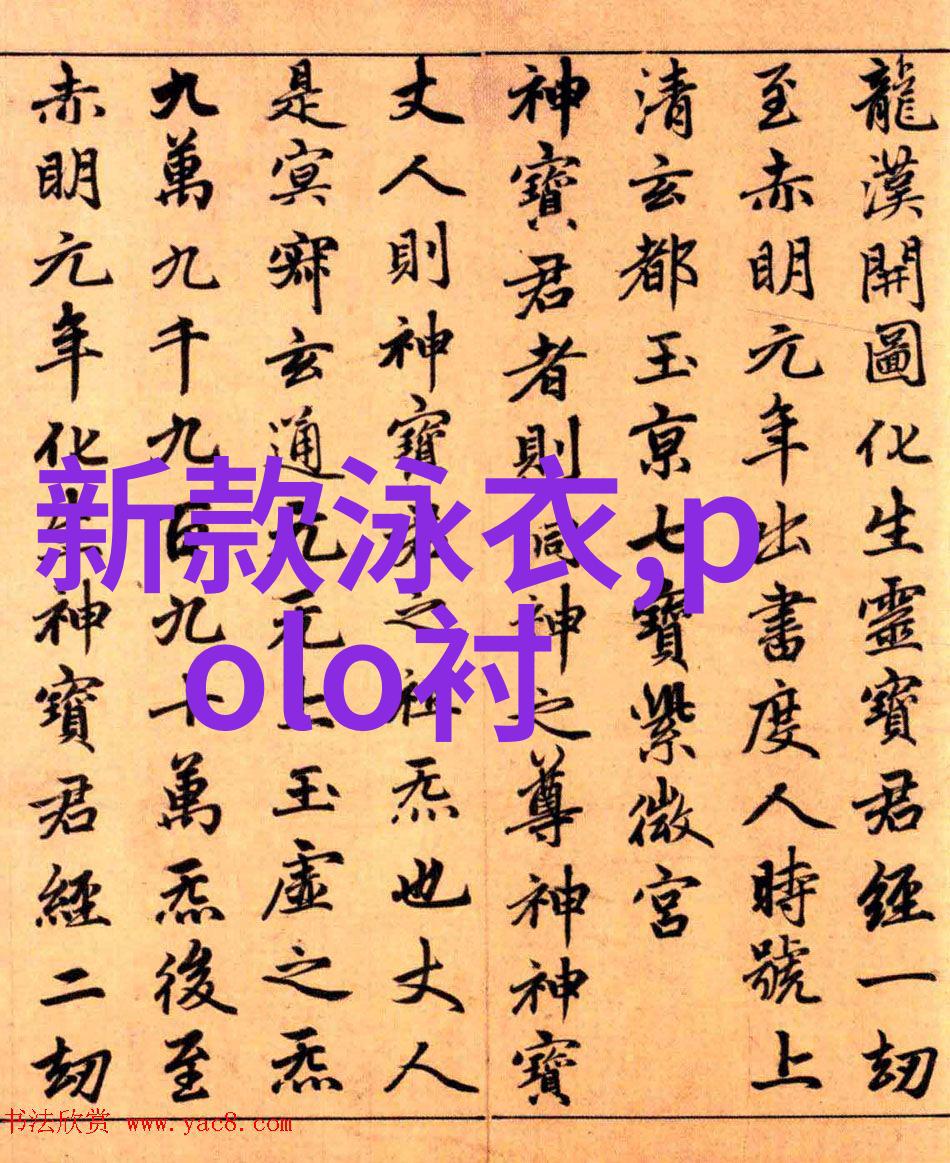 龍漢開圖化生靈寶君經一劫
至赤明元年出書度人時號上
清玄都玉京七寶紫微宮
神寶君者則洞神之尊神神寶
丈人則神寶君之祖炁也丈人
是冥寂玄通元无上玉虛之炁
九萬九千九百九十萬炁後至
赤明元年化生神寶君經二劫
新款泳衣,p
olo衬
书法欣赏 www.yac8.com